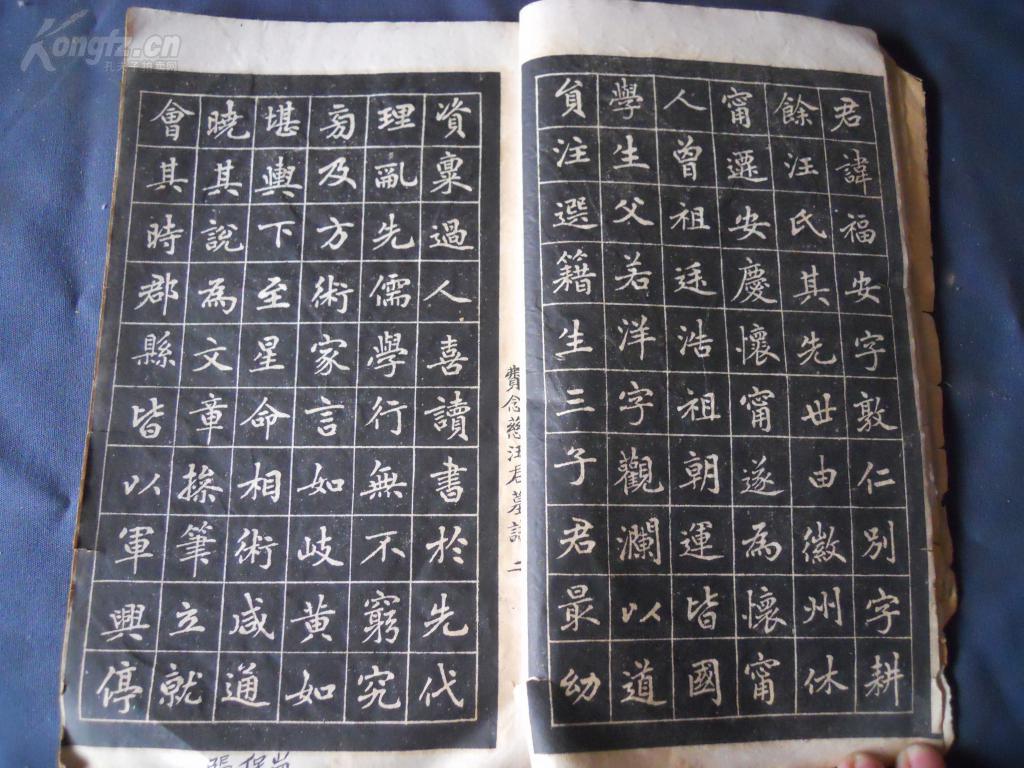 君諱福安字敦仁別字耕
餘汪氏其先世由徽州休
甯遷安慶懷甯遂為懷甯
人曾祖廷浩祖朝運皆國
學生父若洋字觀瀾以道
員注選籍生三子君最幼
費念慈汪君墓誌 二
資稟過人喜讀書於先代
理亂先儒學行無不窮究
旁及方術家言如岐黃如
堪輿下至星命相術咸通
曉其說為文章操筆立就
會其時郡縣皆以軍興停
Kongfz.cn